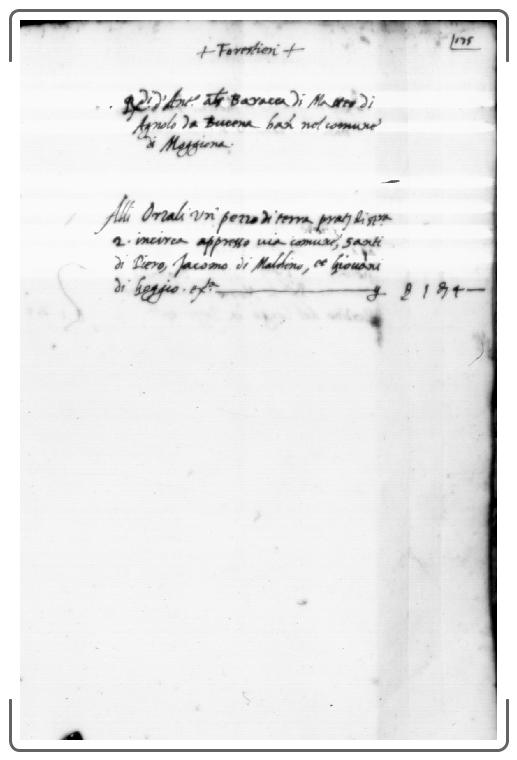 + Forestieri +
125
Rdi d'Ant.o als Baracca di Matteo di
Agnolo da Bucena han nel comune
di Moggiona
Alli Orzali un pezzo di terra prat. di stra
2. incirca appresso via comune, Santi
di Piero, Jacomo di Maldino, et Giovani
di